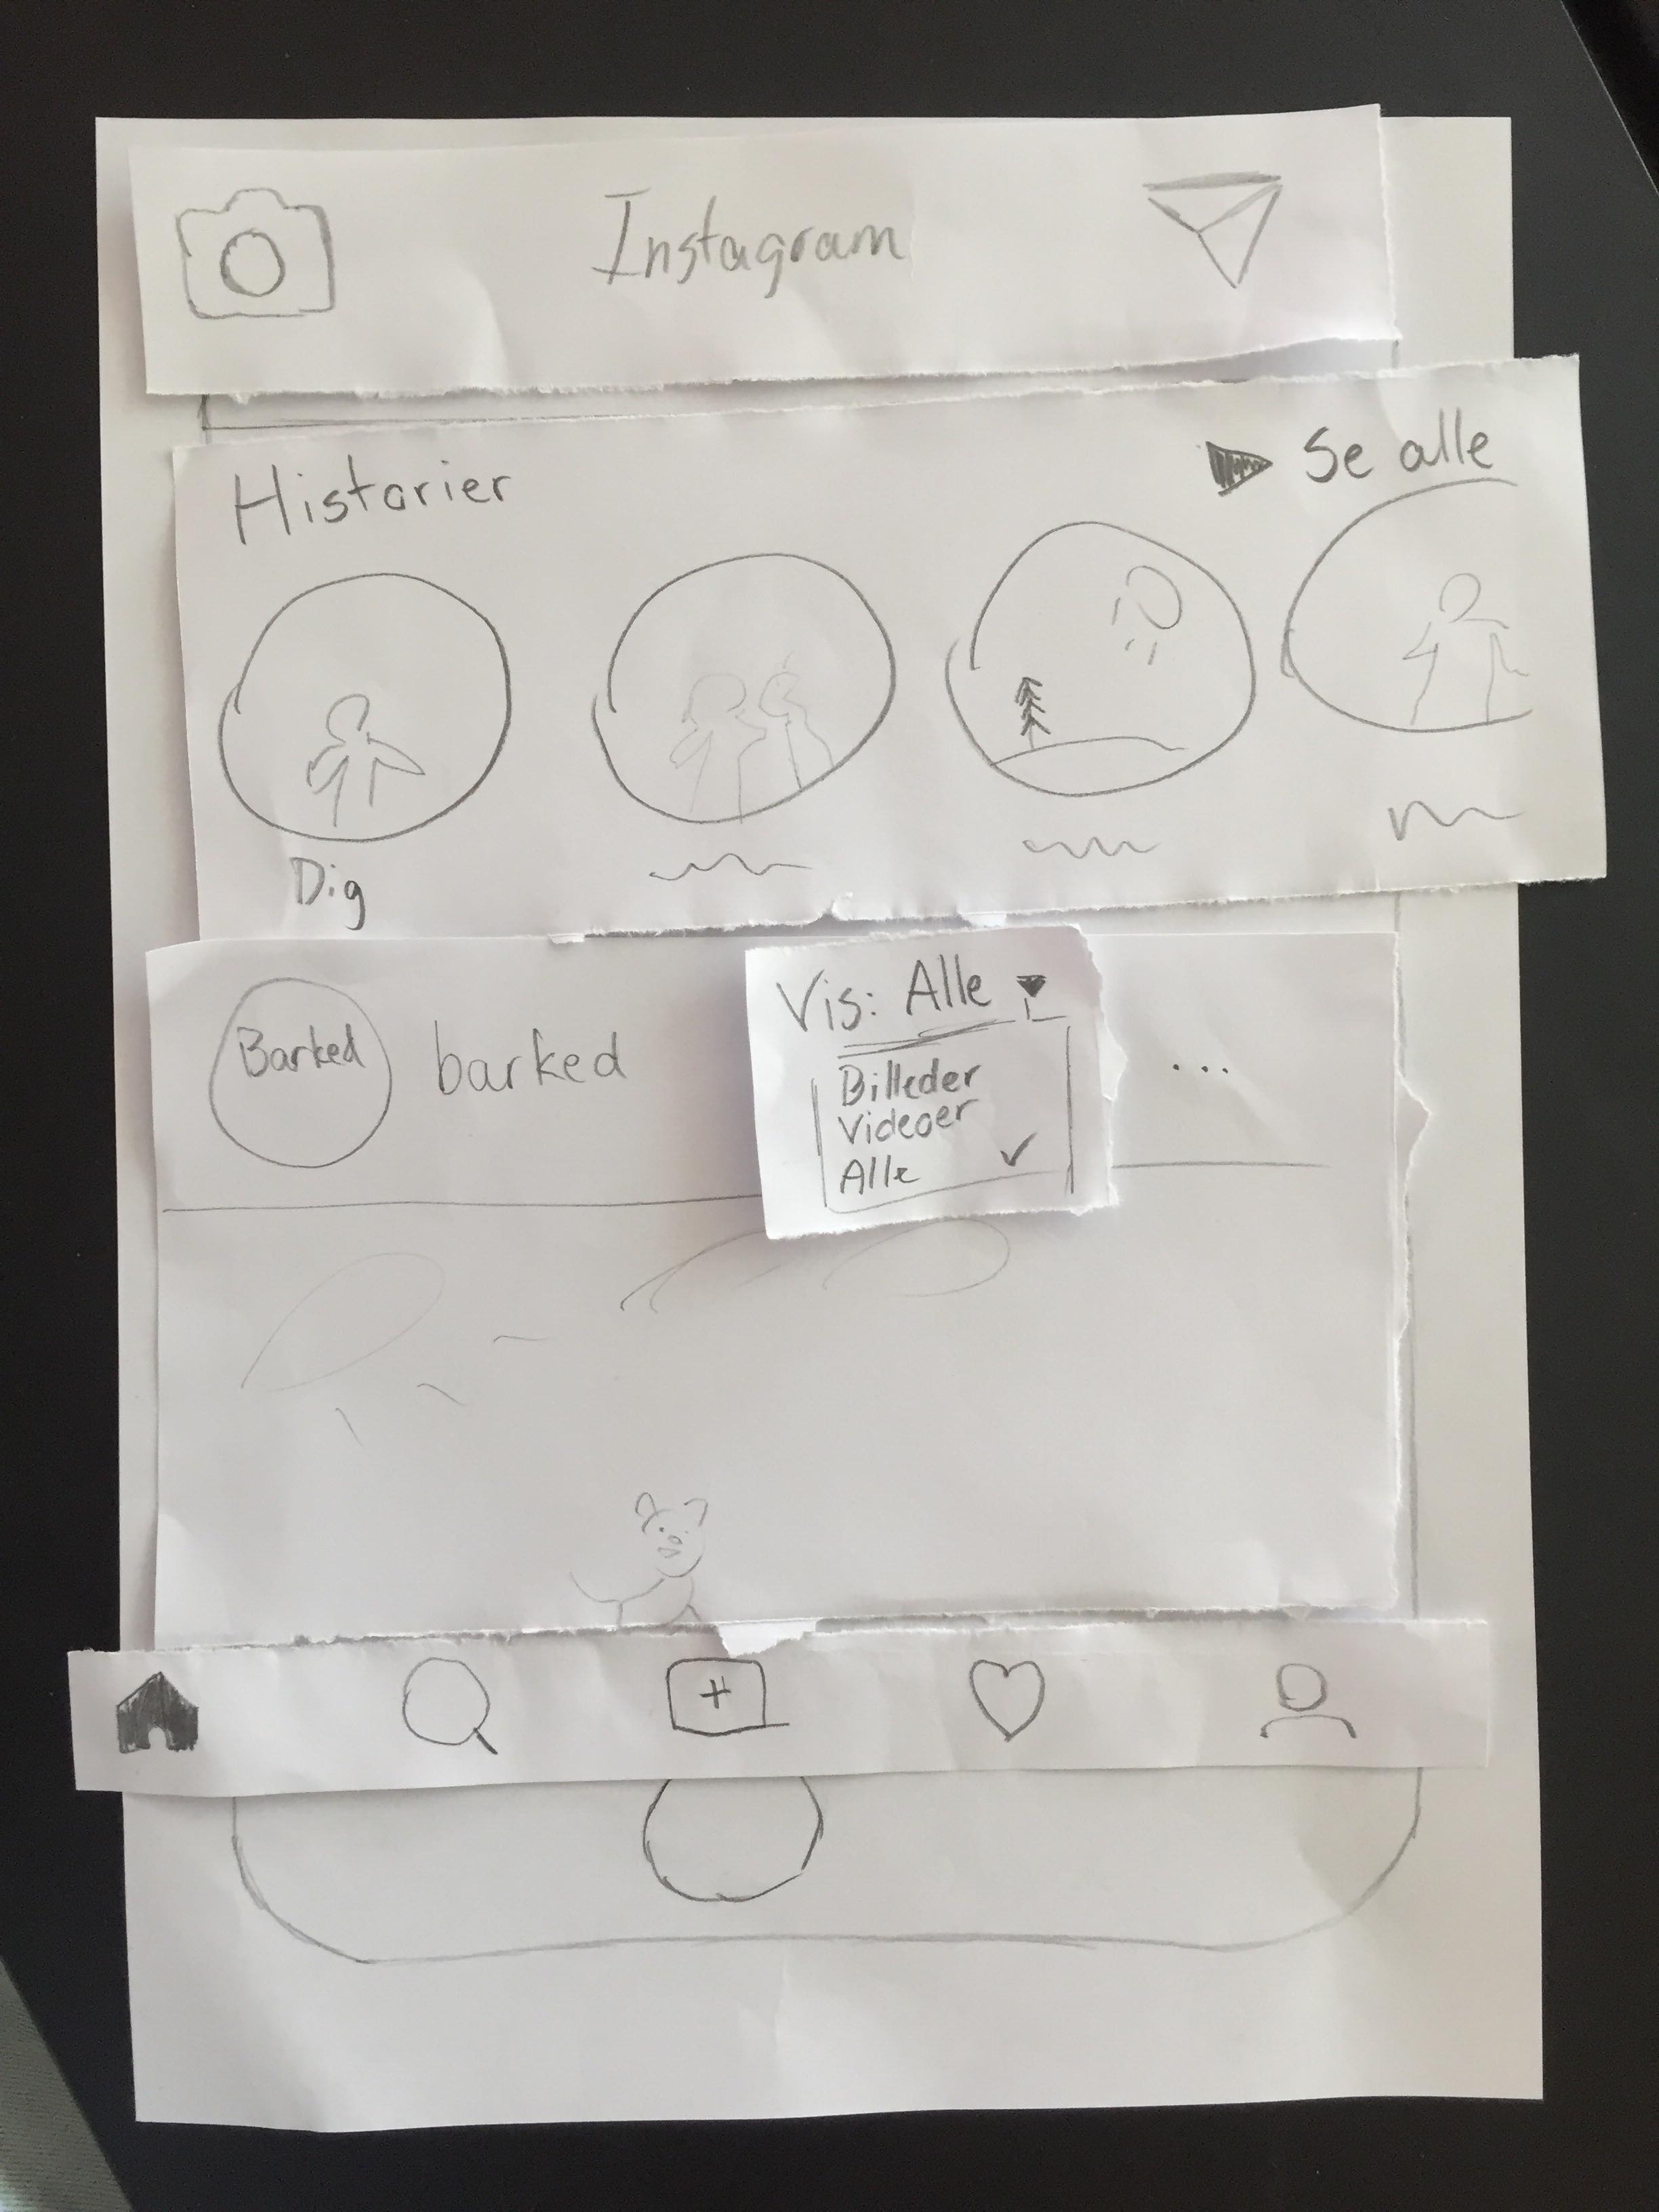 Instagram
Historier
Se alle
Dig
Barked
barked
Vis: Alle
Billeder
Videoer
Alle
...